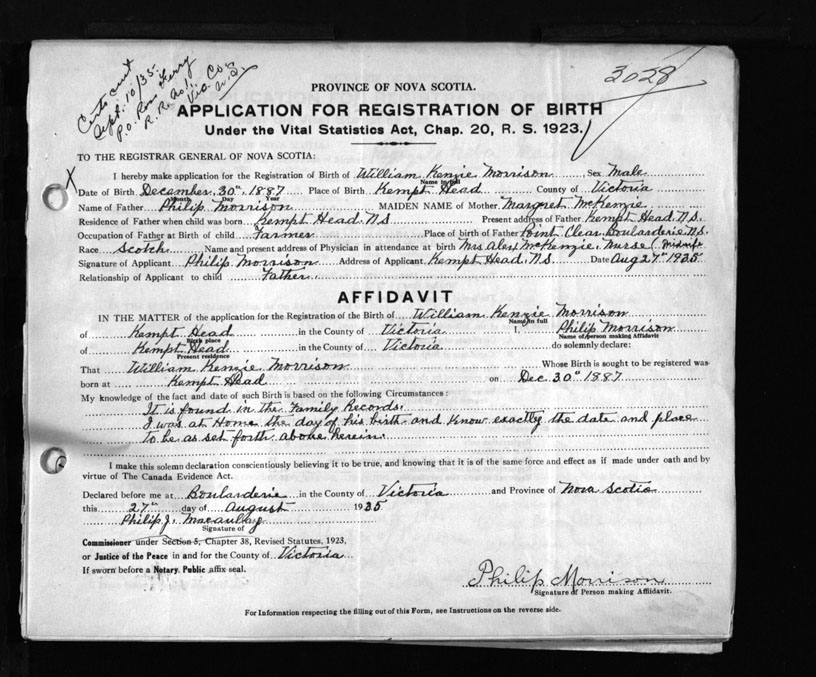 Certs sent
Sept. 10/35.
P.O. Ross Ferry
R.R. No 1. Vic. Co.
N.S.
3028
PROVINCE OF NOVA SCOTIA.
APPLICATION FOR REGISTRATION OF BIRTH
Under the Vital Statistics Act, Chap. 20, R. S. 1923.
TO THE REGISTRAR GENERAL OF NOVA SCOTIA:
X I hereby make application for the Registration of Birth of William Kenzie Morrison Sex Male
Name in full
Date of Birth December, 30th 1887 Place of Birth Kempt Head County of Victoria
Month Day Year
Name of Father Philip Morrison MAIDEN NAME of Mother Margret McKenzie
Residence of Father when child was born Kempt Head, N.S. Present address of Father Kempt Head, N.S.
Occupation of Father at Birth of child Farmer Place of birth of Father Point Clear Boularderie N.S.
Race Scotch Name and present address of Physician in attendance at birth Mrs Alex McKenzie, Nurse (Midwife
Signature of Applicant Philip Morrison Address of Applicant Kempt Head, N.S. Date Aug 27th 1935
Relationship of Applicant to child Father.
AFFIDAVIT
IN THE MATTER of the application for the Registration of the Birth of William Kenzie Morrison
Name in full
of Kempt Head in the County of Victoria I, Philip Morrison
Birth place Name of person making Affidavit
of Kempt Head in the County of Victoria do solemnly declare:
Present residence
That William Kenzie Morrison Whose Birth is sought to be registered was
born at Kempt Head on Dec. 30th 1887
My knowledge of the fact and date of such Birth is based on the following Circumstances:
It is found in the Family Records.
I was at Home the day of his birth and know exactly the date and place
to be as set forth above herein.
I make this solemn declaration conscientiously believing it to be true, and knowing that it is of the same force and effect as if made under oath and by
virtue of The Canada Evidence Act.
Declared before me at Boularderie in the County of Victoria and Province of Nova Scotia
this 27th day of August 1935
Philip J. Macaulay
Signature of
Commissioner under Section 5, Chapter 38, Revised Statutes, 1923,
or Justice of the Peace in and for the County of Victoria
If sworn before a Notary Public affix seal.
Philip Morrison
Signature of Person making Affidavit.
For Information respecting the filling out of this Form, see Instructions on the reverse side.